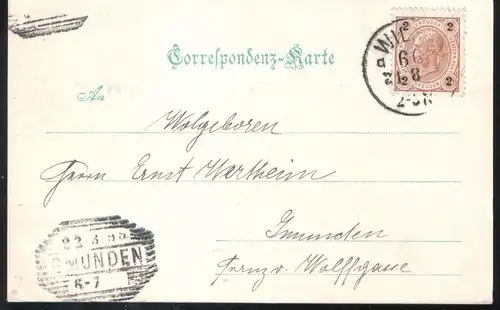 Correspondenz-Karte
2 2
2 2
WIE
An
Wolgeboren
Herrn Ernst Wertheim
Gmunden
Wolffgasse
22 3 95
GMUNDEN
6-7